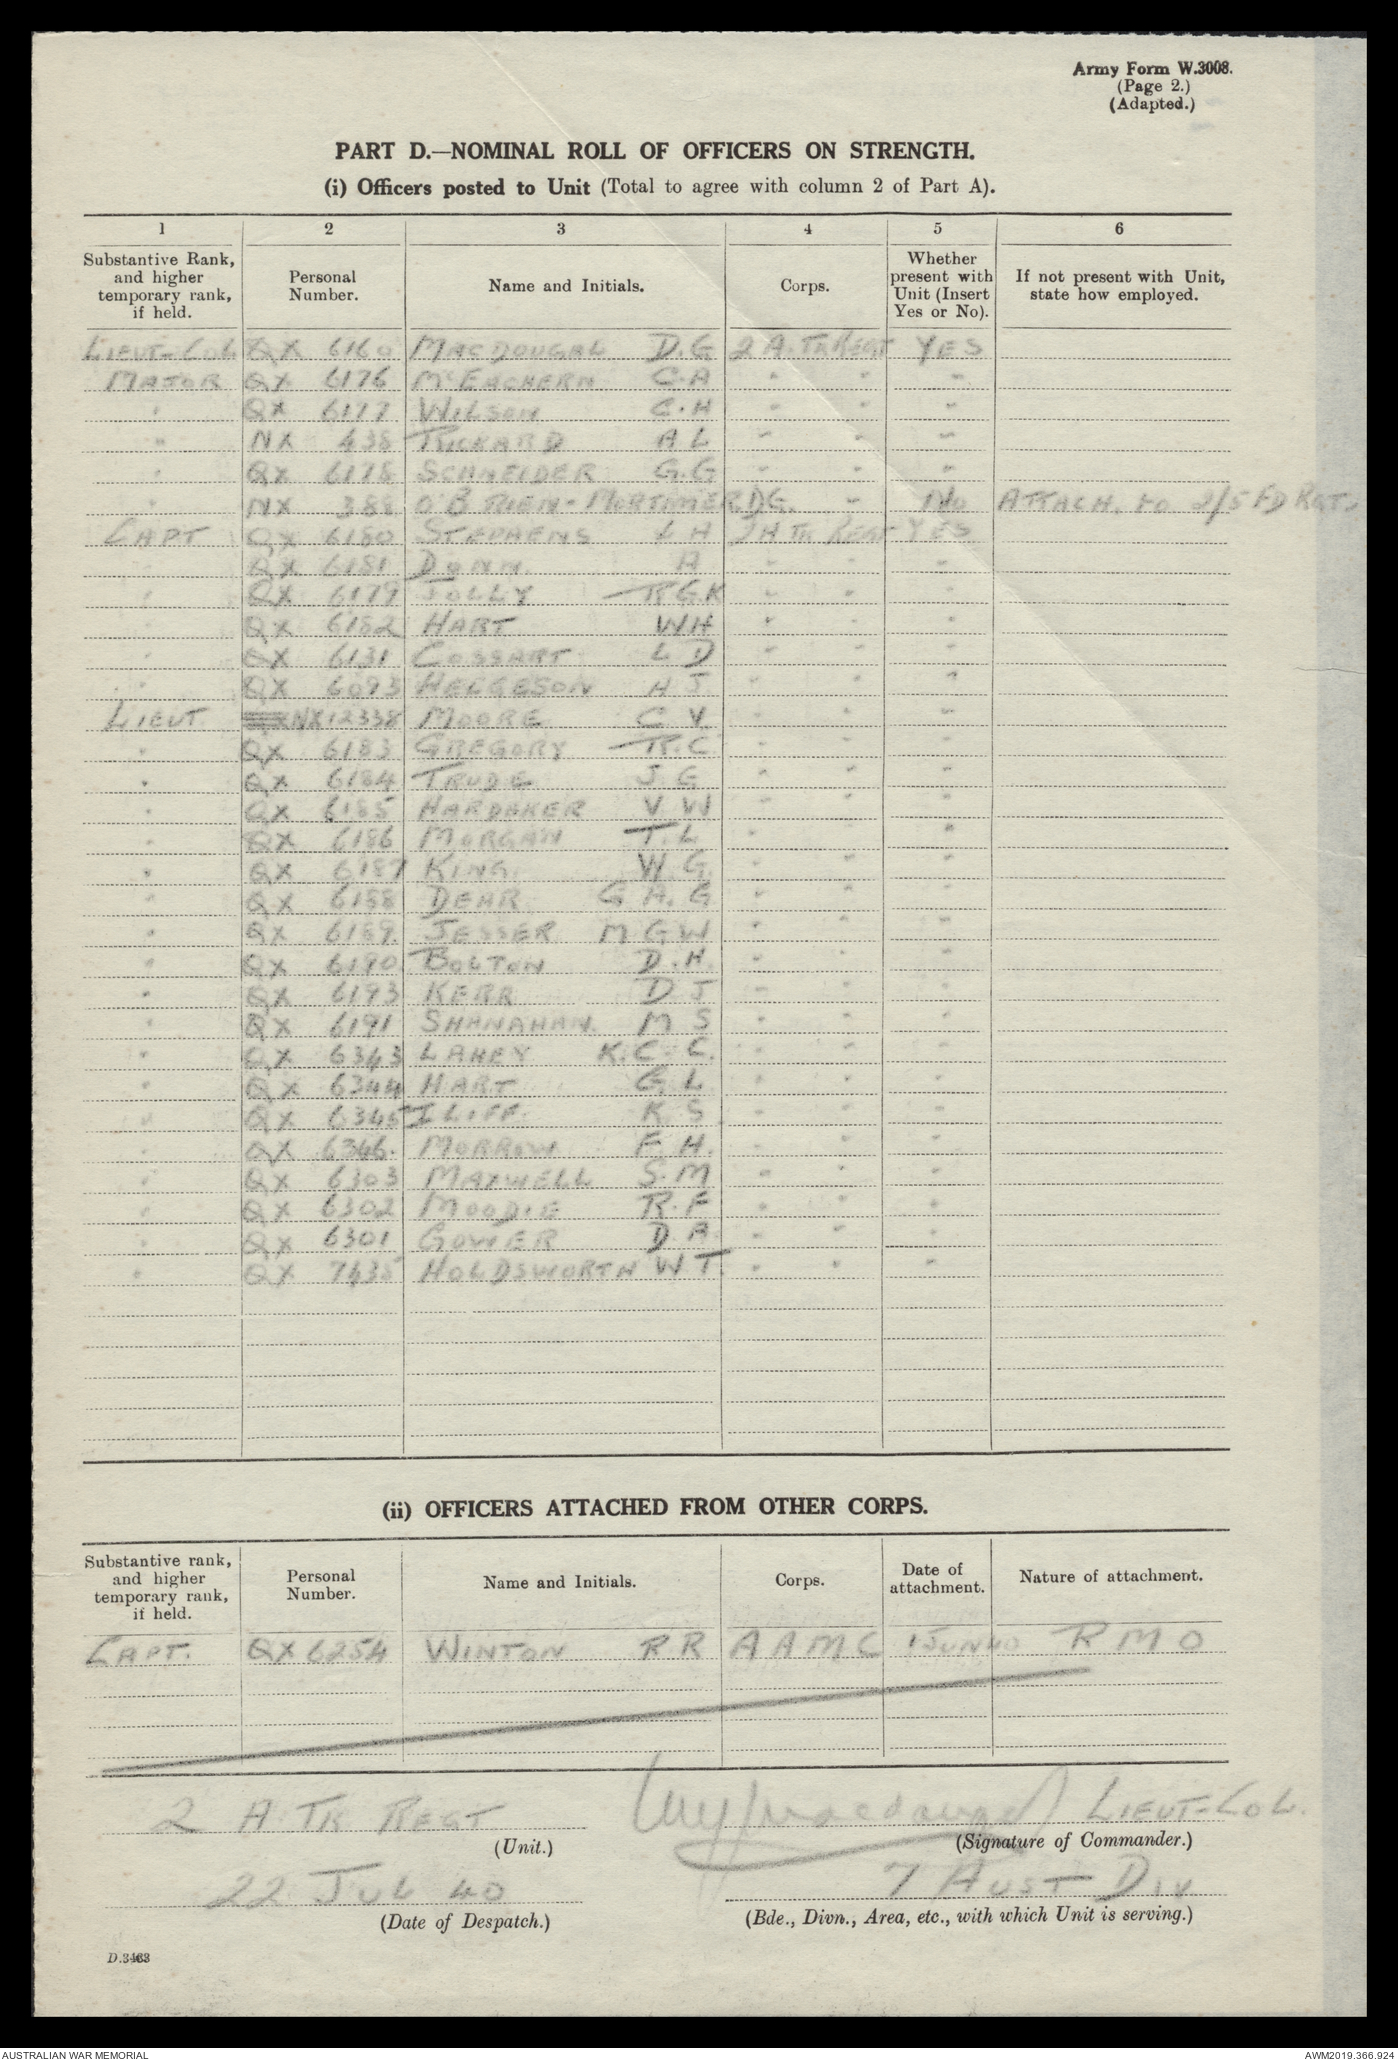 Army Form W.3008.
(Page 2.)
(Adapted.)
PART D.—NOMINAL ROLL OF OFFICERS ON STRENGTH.
(i) Officers posted to Unit (Total to agree with column 2 of Part A).
1 2 3 4 5 6
Substantive Rank, and higher temporary rank, if held. Personal Number. Name and Initials. Corps. Whether present with Unit (Insert Yes or No). If not present with Unit, state how employed.
LIEUT-COL QX 6160 MACDOUGAL D.G 2 A.TK REGT YES
MAJOR QX 6176 McEACHERN C.A " " "
" QX 6177 WILSON C.H " " "
" NX 438 RICKARD A L " " "
" QX 6178 SCHNEIDER G.G " " "
" NX 388 O'BRIEN-MORTIMER D G. " No ATTACH. to 2/5 FD RGT.
CAPT QX 6180 STEPHENS L H 2 A TK REGT YES
" QX 6181 DUNN A " " "
" QX 6179 JOLLY R G K " " "
" QX 6182 HART W H " " "
" QX 6131 COSSART L D " " "
" QX 6093 HELGESON H J " " "
LIEUT NX 12338 MOORE C V " " "
" QX 6183 GREGORY R.C " " "
" QX 6184 TRUDE J G " " "
" QX 6185 HARDAKER V W " " "
" QX 6186 MORGAN T.L " " "
" QX 6187 KING W G. " " "
" QX 6188 DEAR G A. G " " "
" QX 6189 JESSER M G W " " "
" QX 6190 BOLTON D.H. " " "
" QX 6193 KERR D J " " "
" QX 6191 SHANAHAN. M S " " "
" QX 6343 LAHEY K. C. C. " " "
" QX 6344 HART G L " " "
" QX 6345 ILIFF K S " " "
" QX 6346. MORROW F H. " " "
" QX 6303 MAXWELL S.M " " "
" QX 6302 MOODIE R.F " " "
" QX 6301 GOVIER D A. " " "
" QX 7435 HOLDSWORTH W T. " " "
(ii) OFFICERS ATTACHED FROM OTHER CORPS.
Substantive rank, and higher temporary rank, if held. Personal Number. Name and Initials. Corps. Date of attachment. Nature of attachment.
CAPT. QX 6254 WINTON R R A A M C 1 JUN 40 R M O
2 A TK REGT Macdougal LIEUT-COL.
(Unit.) (Signature of Commander.)
22 JUL 40 7 AUST DIV
(Date of Despatch.) (Bde., Divn., Area, etc., with which Unit is serving.)
D.3463
AUSTRALIAN WAR MEMORIAL AWM2019.366.924